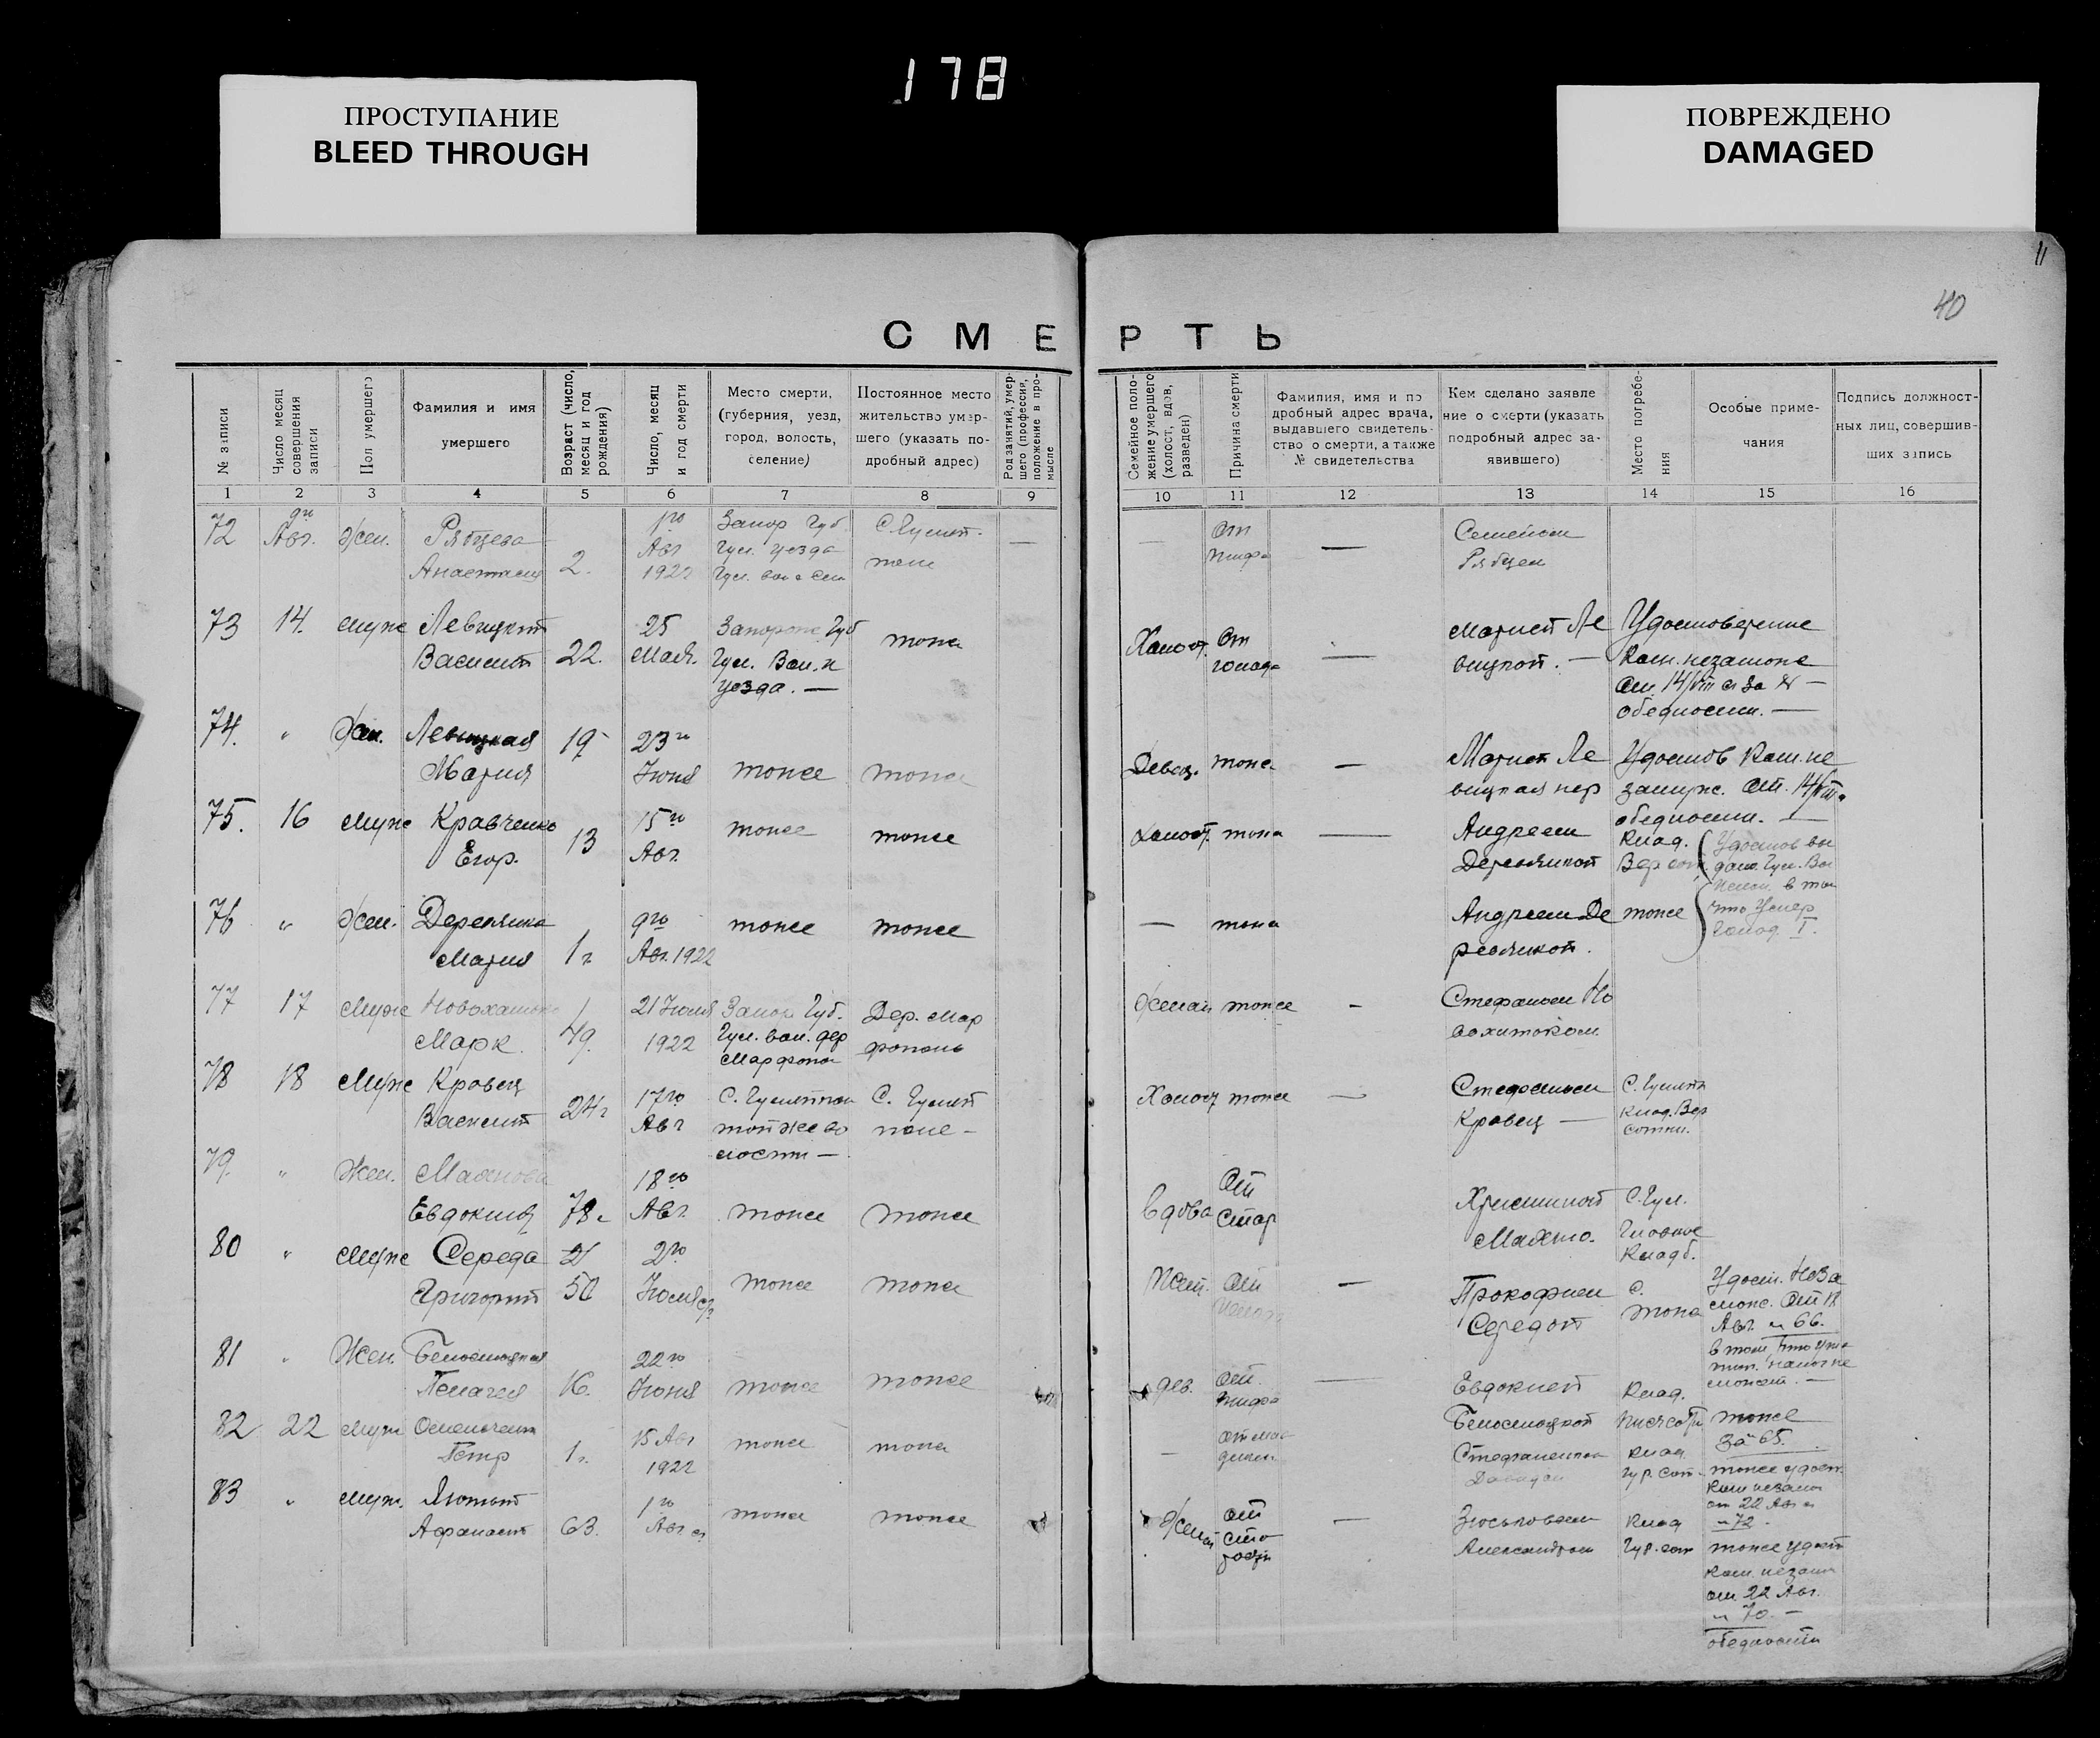 178
ПРОСТУПАНИЕ
BLEED THROUGH
ПОВРЕЖДЕНО
DAMAGED
11
40
СМЕРТЬ
№ записи
Число месяц совершения записи
Пол умершего
Фамилия и имя умершего
Возраст (число, месяц и год рождения)
Число, месяц и год смерти
Место смерти, (губерния, уезд, город, волость, селение)
Постоянное место жительство умершего (указать подробный адрес)
Род занятий, умершего (профессия, положение в промысле
Семейное положение умершего (холост, вдов, разведен)
Причина смерти
Фамилия, имя и подробный адрес врача, выдавшего свидетельство о смерти, а также № свидетельства
Кем сделано заявление о смерти (указать подробный адрес заявившего)
Место погребения
Особые примечания
Подпись должностных лиц, совершивших запись
1 2 3 4 5 6 7 8 9 10 11 12 13 14 15 16
72 Авг. Жен. Рябцева Анастасия 2. 1го Авг 1922 Запор Губ. Гул. уезда — От тифа — Семеном Рябцем
73 14. Муж Левицкий Василий 22. 25 Мая. Запорож Губ Гул. Вол. и уезда. — тоже Холост. От голода — Марией Левицкой. — Удостоверение Ком. незаможе От 14/VIII за № — обедности. —
74. " Жен. Левицкая Мария 19 23го Июня тоже тоже Девиц. тоже — Марией Левицкая Удостов Ком. не замож. От. 14/VIII обедности. —
75. 16 Муж Кравченко Егор. 13 15го Авг. тоже тоже холост. тоже — Андреем Деревянкой Клад. Вер сот Удостов вы дано Гул. Вол Испол. в том что Умер Голод.
76 " Жен. Деревянко Мария 1 г 9го Авг. 1922 тоже тоже — тоже Андреем Деревянкой. тоже
77 17 Муж Марк 49. 21 Июля 1922 Запор Губ. Гул. вол. дер Марфопол Дер. Марфополь Женат тоже - Стефаном Но
78 18 Муж Кровец Василий 24 г 17го Авг С. Гуляйпол той же волости — С. Гуляйполе - Холост тоже — Стефаном Кровец — С. Гуляйп Клад. Вер сотни.
79. " Жен. Махнова Евдокия 78 г 18го Авг. тоже тоже вдова От стар Християной Махно. С. Гул. Главное Кладб.
80 " Муж Середа Григорий 50 2го Июля тоже тоже Жен. От — Прокофием Середой С. тоже Удост. Неза може. От 18 Авг. № 66. в том, что упла тит. налог не может. —
81 " Жен. Пелагея 16. 22го Июня тоже тоже дев. От. тифа — Евдокией Клад. тоже За 65.
82 22 Муж Омельченко Петр 1 г. 15 Авг 1922 тоже тоже — клад Гур. сот. тоже удост. Ком незамож от 22 Авг № 72.
83 " Муж. Лютый Афанасий 63. 1го Авг тоже тоже Женат От старости — Александром Клад Гур. сот тоже удост Ком. незам от 22 Авг. № 70. — обедности